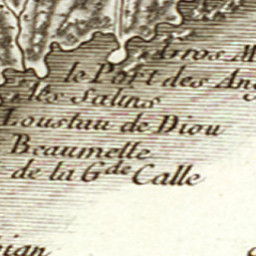 Arros M
le Port des Ang
Les Salins
Loustau de Diou
Beaumelle
de la Gde Calle